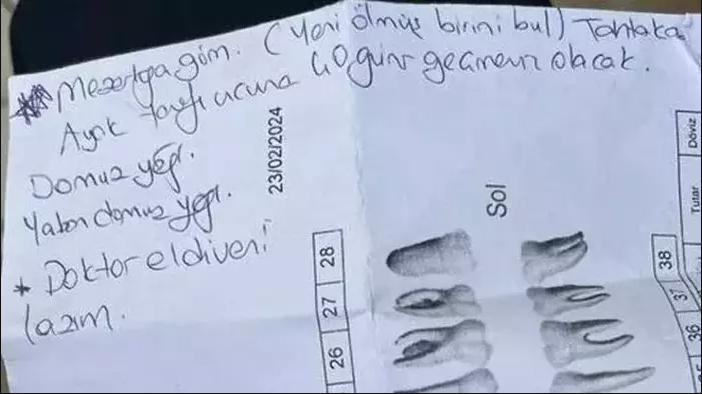 * Mezarlığa göm. (Yeni ölmüş birini bul) Tahtaka
Ayrık tarafı ucuna 40 günü geçmemiz olacak.
Domuz yağı.
Yaban domuz yağı.
* Doktor eldiveni
lazım.
23/02/2024
Sol
28
27
26
38
37
36
Tutar
Döviz